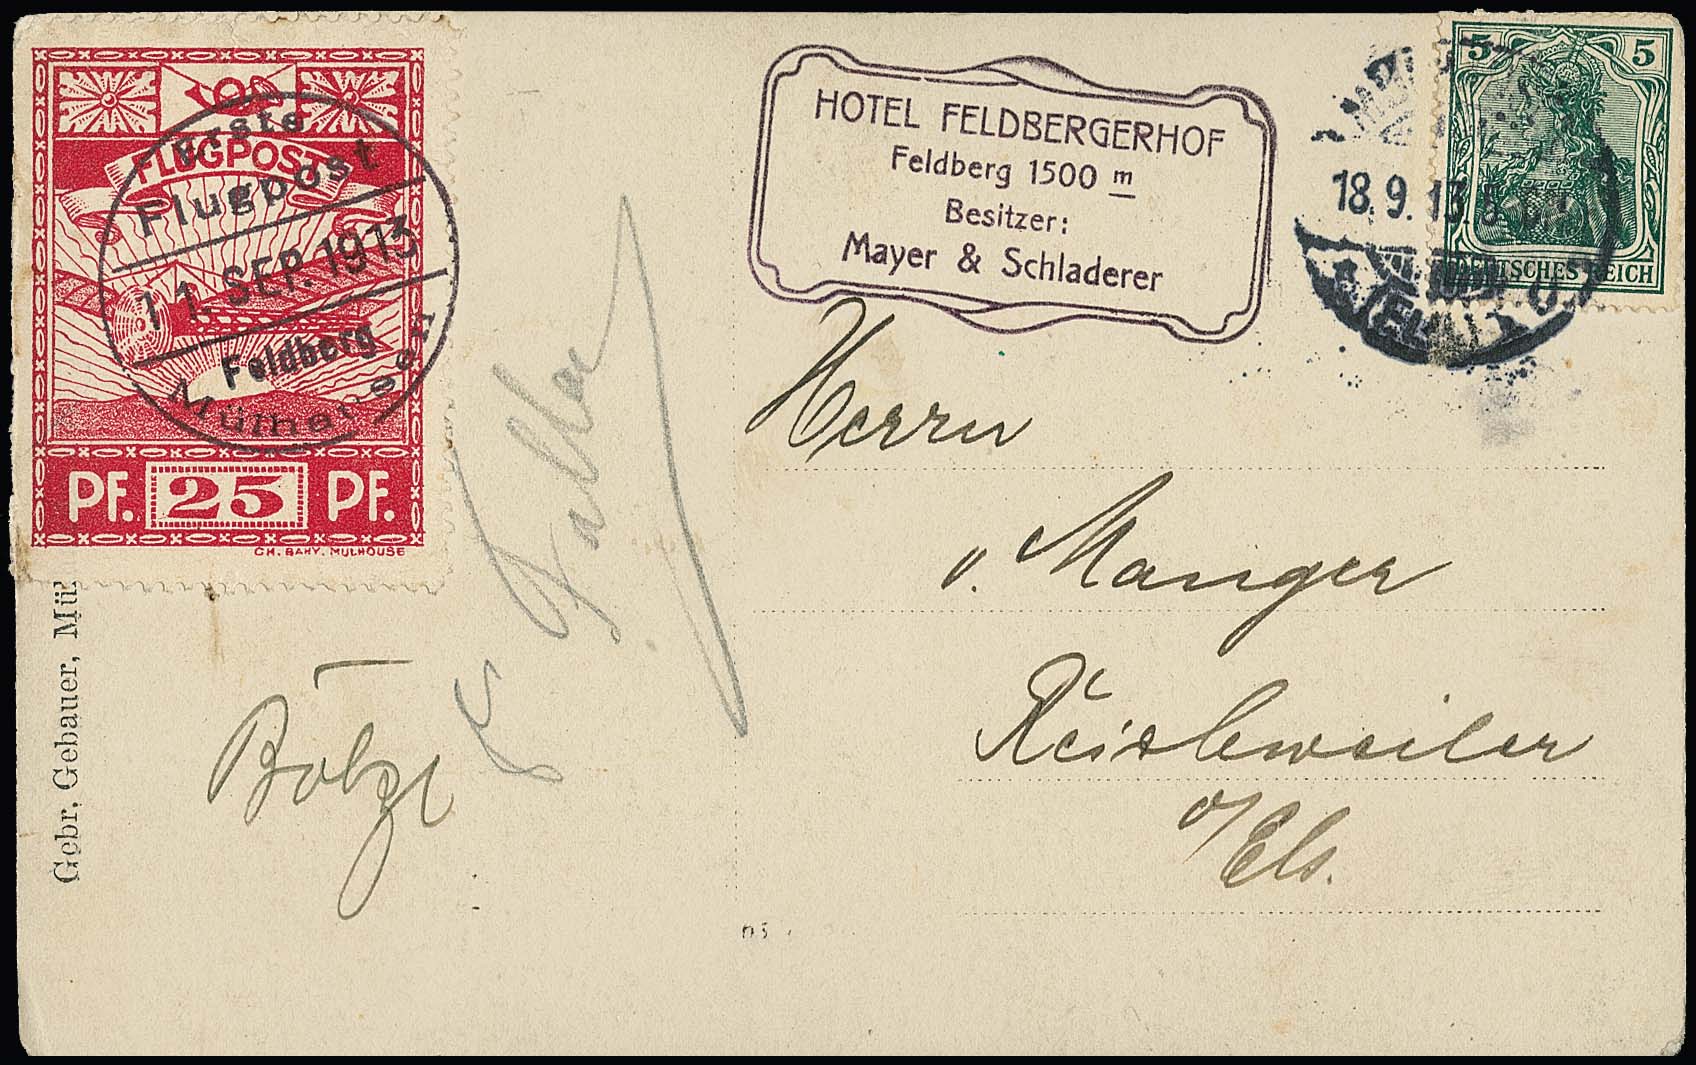 FLUGPOST
Erste
Flugpost
11. SEP. 1913
Feldberg
Mülhausen
PF. 25 PF.
CH. BAHY. MULHOUSE
HOTEL FELDBERGERHOF
Feldberg 1500 m
Besitzer:
Mayer & Schladerer
5 5
DEUTSCHES REICH
18.9.13.
Herrn
v. Manger
Reichweiler
o/Els.
Gebr. Gebauer, Mül